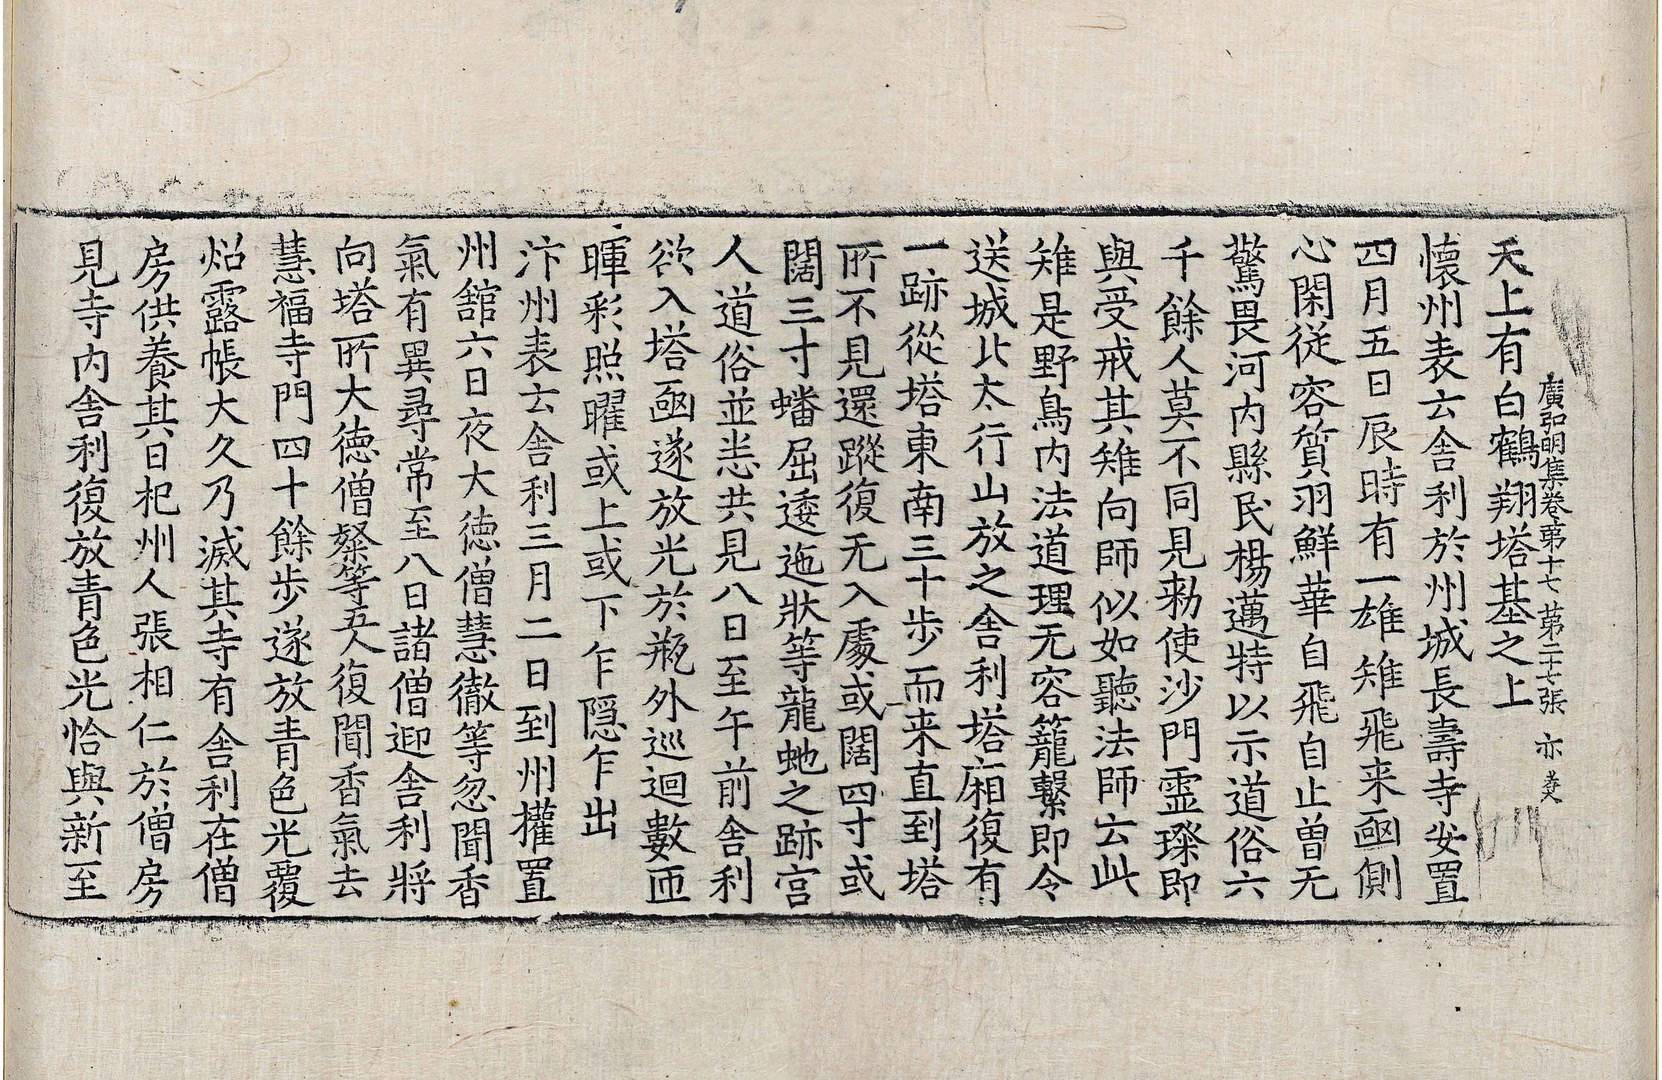 廣弘明集卷苐十七 第二十七張 亦
天上有白鶴翔塔基之上
懷州表云舍利於州城長壽寺安置
四月五日辰時有一雄雉飛来凾側
心閑從容質羽鮮華自飛自止曽无
驚畏河内縣民楊邁特以示道俗六
千餘人莫不同見勑使沙門靈璨即
與受戒其雉向師似如聽法師云此
雉是野鳥内法道理无容籠繫即令
送城北太行山放之舍利塔廂復有
一跡從塔東南三十步而来直到塔
所不見還蹤復无入處或闊四寸或
闊三寸蟠屈逶迤狀等龍虵之跡宫
人道俗並悉共見八日至午前舍利
欲入塔凾遂放光於瓶外巡迴數匝
暉彩照曜或上或下乍隱乍出
汴州表云舍利三月二日到州權置
州舘六日夜大徳僧慧徹等忽聞香
氣有異尋常至八日諸僧迎舍利將
向塔所大徳僧粲等五人復聞香氣去
慧福寺門四十餘步遂放青色光覆
炤露帳大久乃滅其寺有舍利在僧
房供養其日杞州人張相仁於僧房
見寺内舍利復放青色光恰與新至